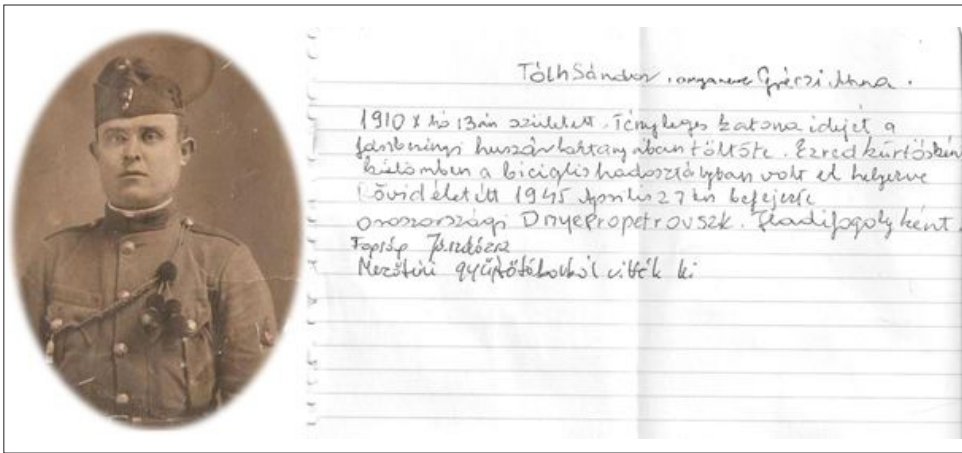 Tóth Sándor. anyaneve Gréczi Anna.
1910 X hó 13án született. Tényleges katona idejét a
jászberényi huszárlaktanyában töltöte. Ezred kürtösként
különben a biciglis hadosztályban volt el helyezve
Rövid életét 1945 Április 27 én befejezte
oroszországi Dnyepropetrovszk. Hadifogolyként.
Jászdózsa
Mezőtúri gyűjtőtáborból vitték ki